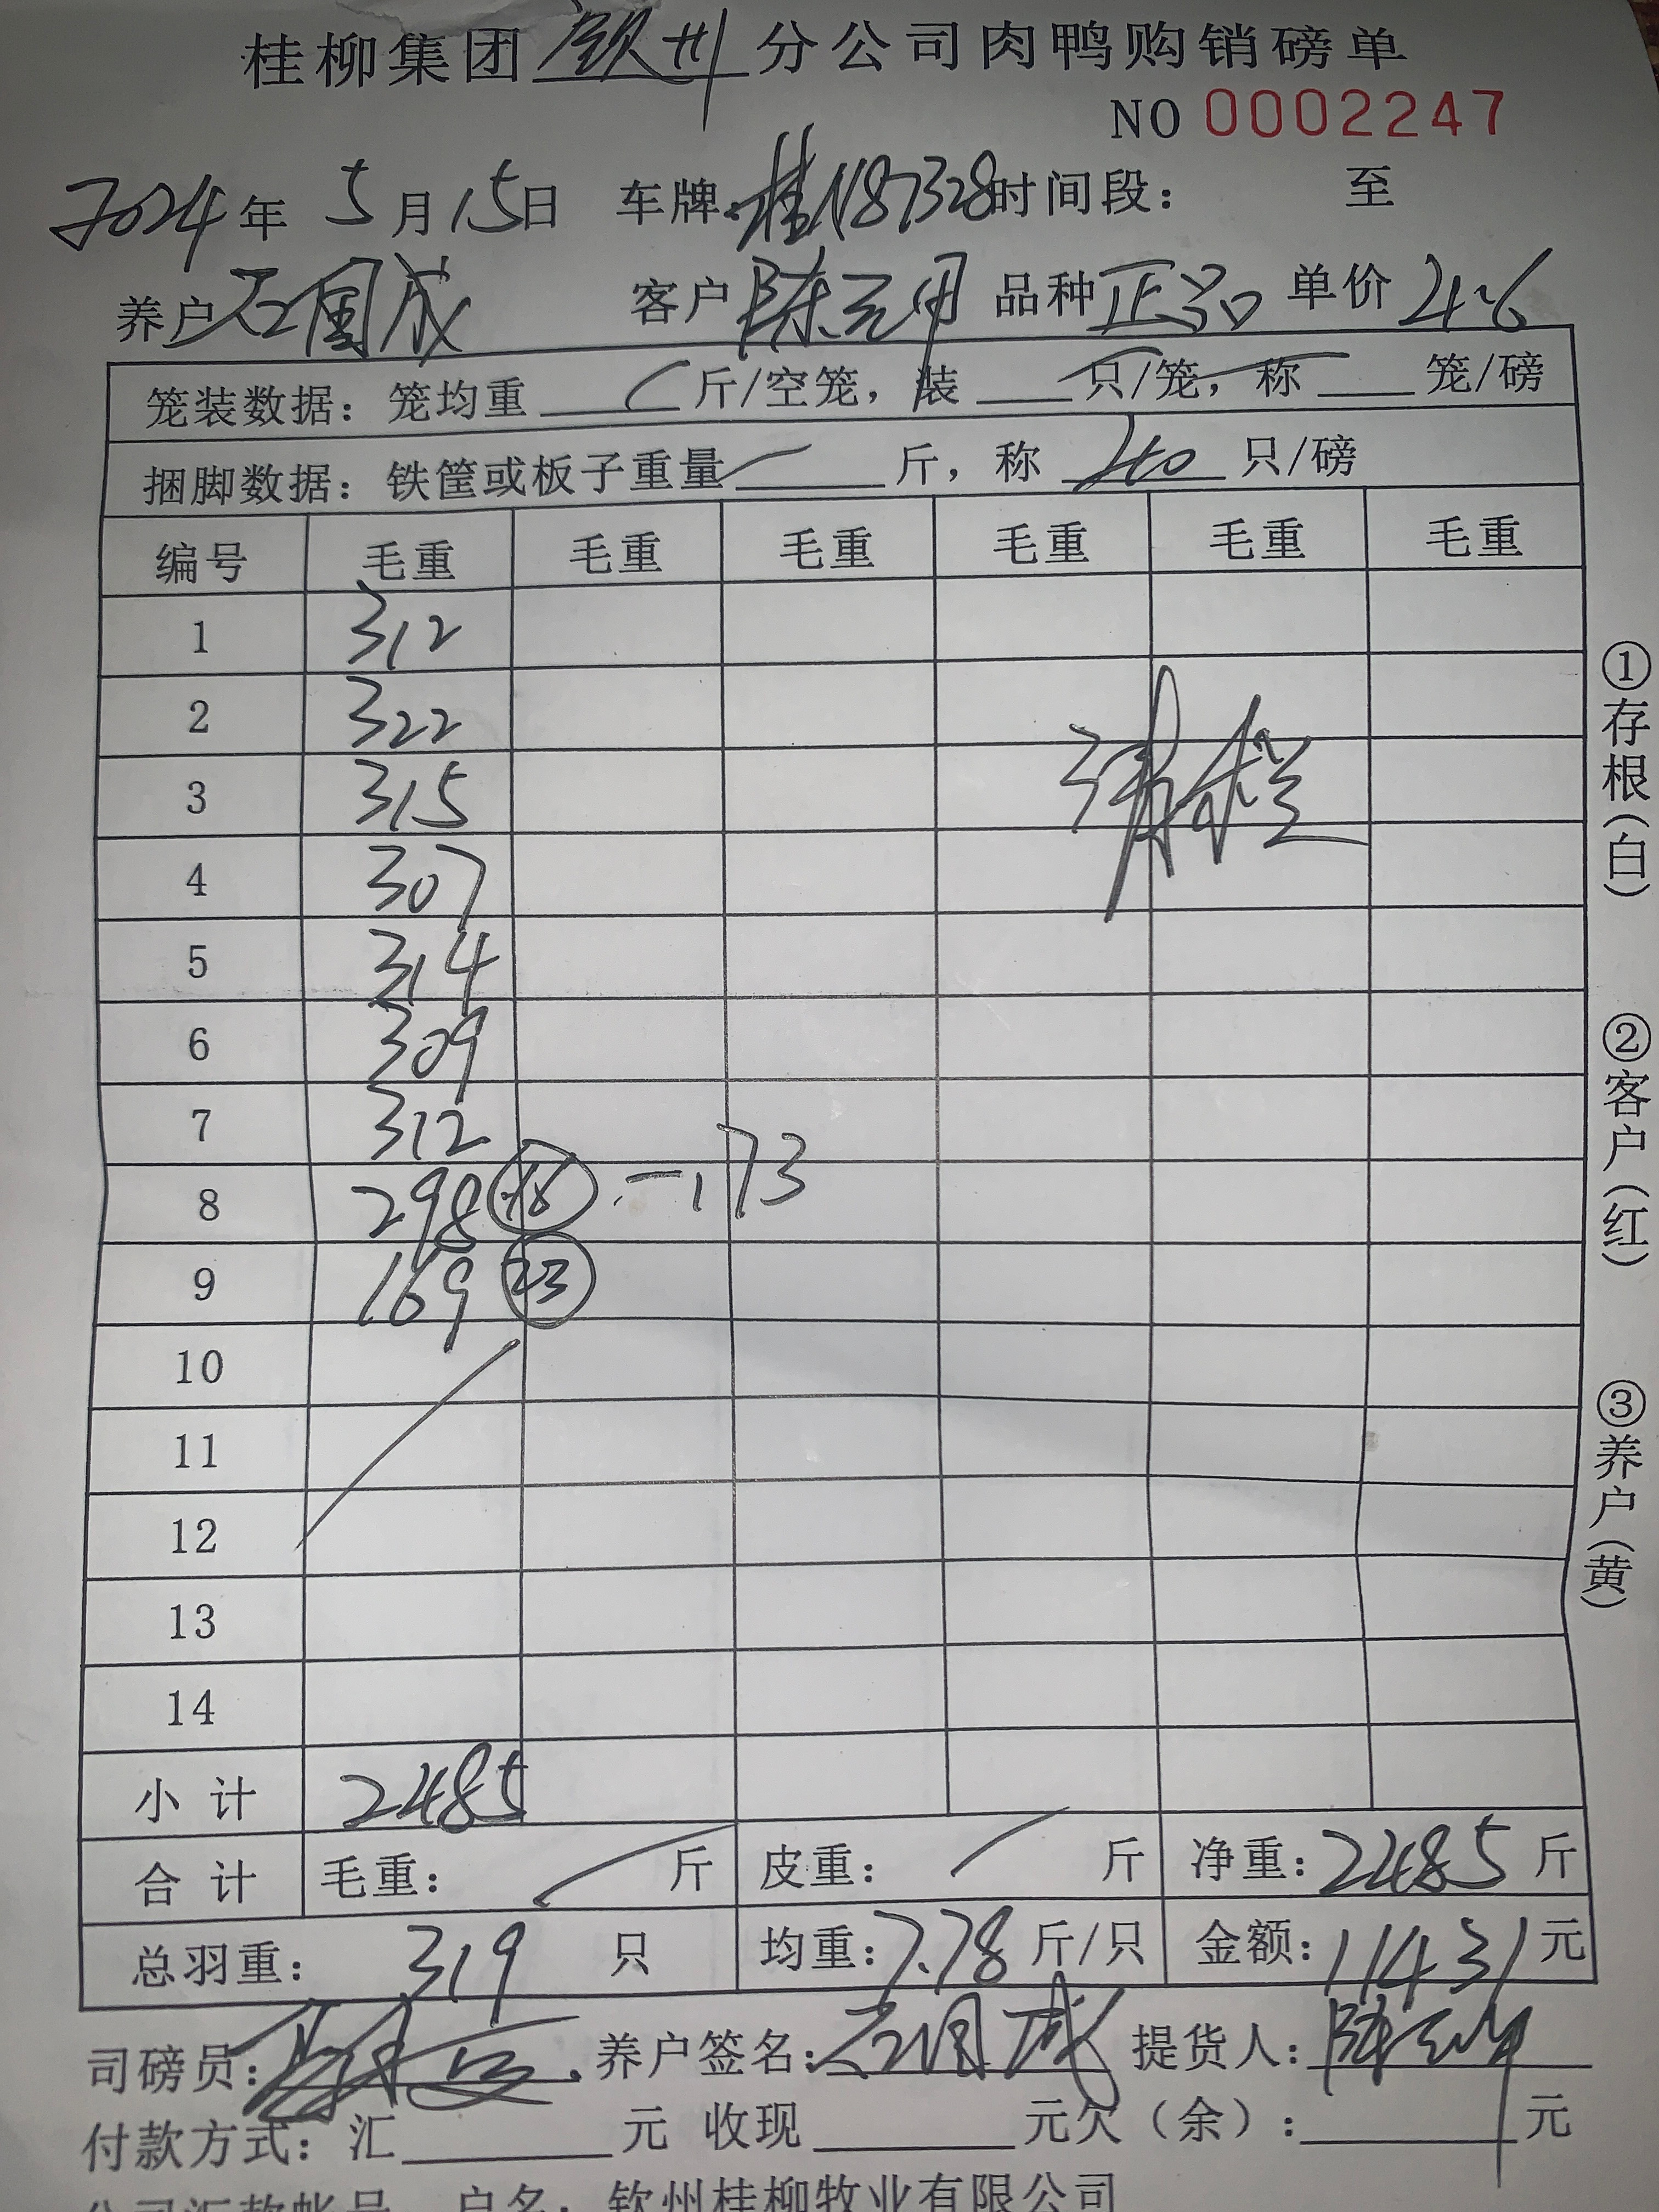 桂柳集团钦州分公司肉鸭购销磅单
NO 0002247
2024年 5月15日 车牌:桂N87328时间段: 至
养户 国成 客户 陈元用 品种 正品 单价 4.6
笼装数据: 笼均重 斤/空笼, 装 只/笼, 称 笼/磅
捆脚数据: 铁筐或板子重量 斤, 称 40 只/磅
编号 毛重 毛重 毛重 毛重 毛重 毛重
1 312
2 322
3 315
4 307
5 314
6 309
7 312
8 298 -173
9 169 23
10
11
12
13
14
小计 2485
合计 毛重: 斤 皮重: 斤 净重: 2485 斤
总羽重: 319 只 均重: 7.78 斤/只 金额: 11431 元
司磅员: 养户签名: 国成 提货人: 陈
付款方式: 汇 元 收现 元欠(余): 元
公司汇款帐号 户名: 钦州桂柳牧业有限公司
①存根(白)
②客户(红)
③养户(黄)